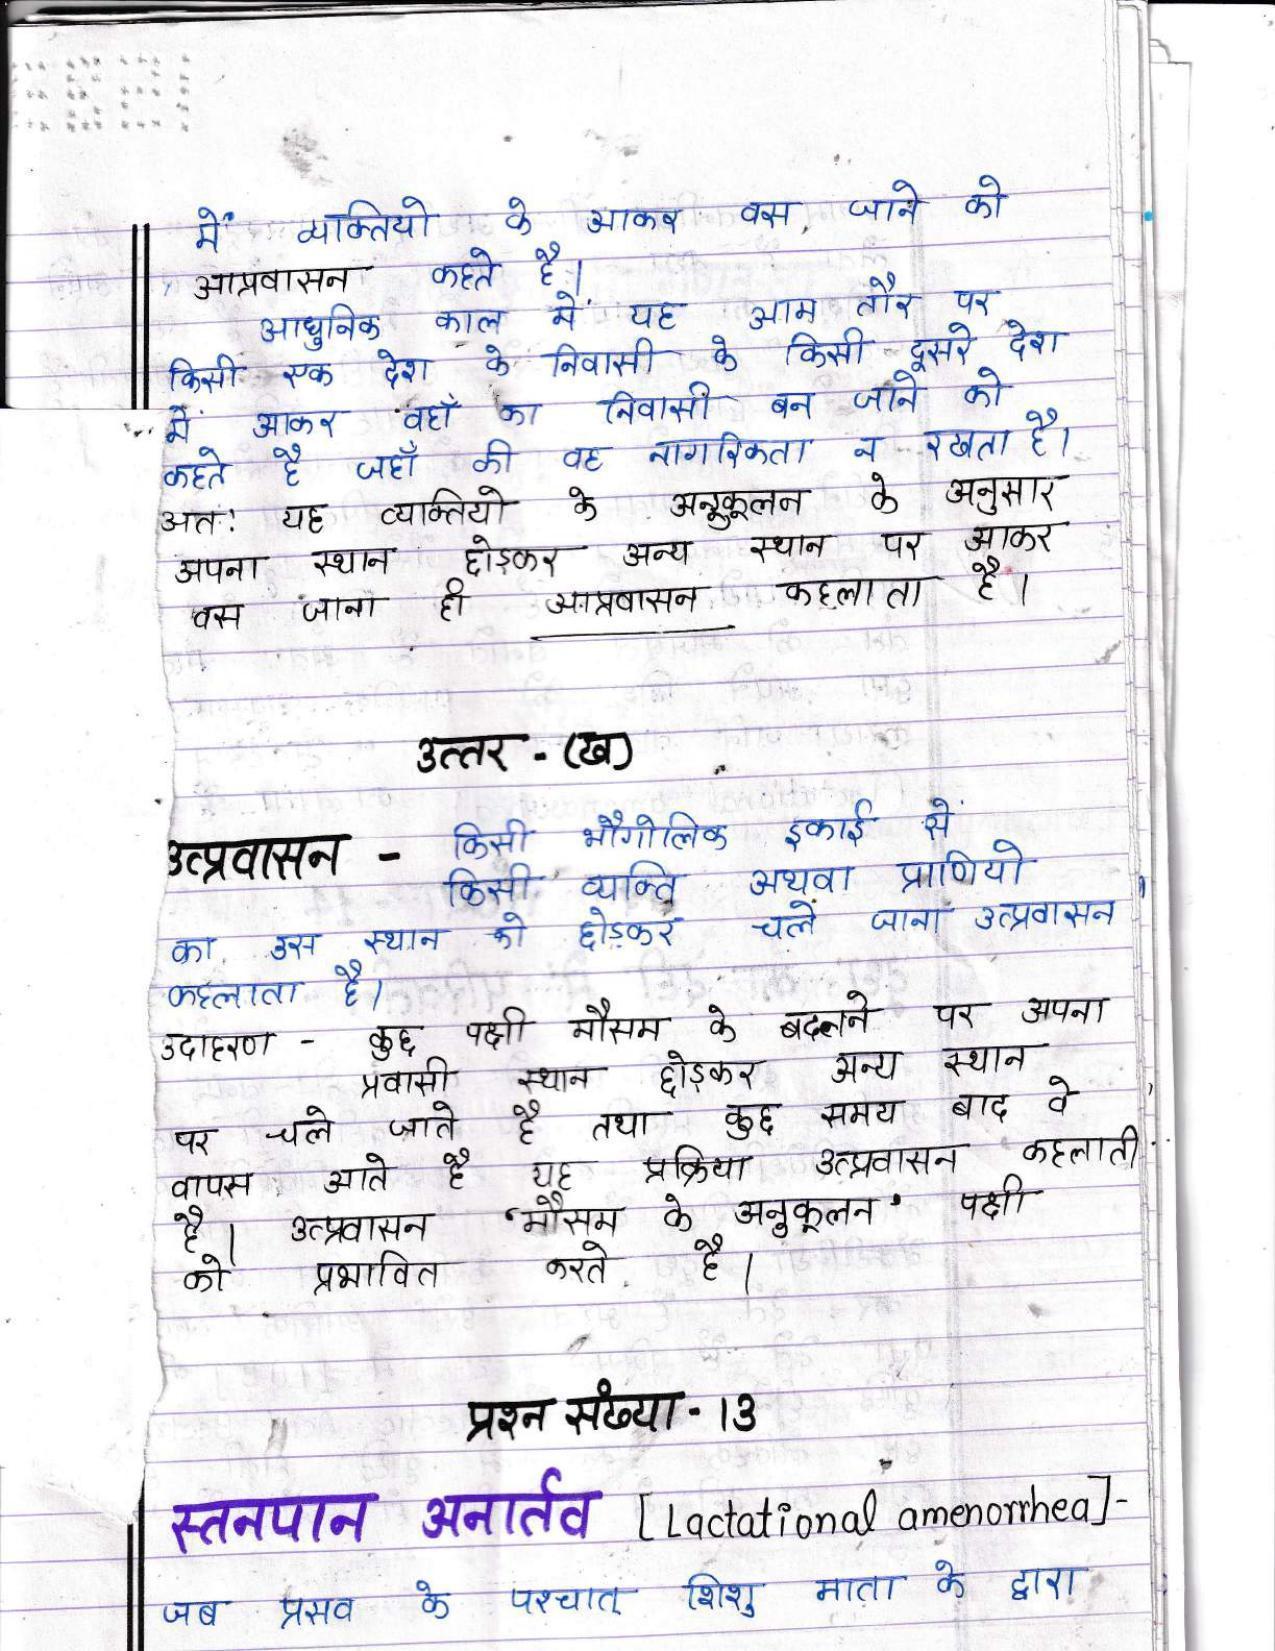 में व्यक्तियो के आकर वस जाने को
आप्रवासन कहते है।
आधुनिक काल में यह आम तौर पर
किसी एक देश के निवासी के किसी दूसरे देश
में आकर वहाँ का निवासी बन जाने को
कहते है जहाँ की वह नागरिकता न रखता है।
अतः यह व्यक्तियो के अनुकूलन के अनुसार
अपना स्थान छोड़कर अन्य स्थान पर आकर
वस जाना ही आप्रवासन कहलाता है।
उत्तर - (ख)
उत्प्रवासन - किसी भौगोलिक इकाई से
किसी व्यक्ति अथवा प्राणियो
का उस स्थान को छोड़कर चले जाना उत्प्रवासन
कहलाता है।
उदाहरण - कुछ पक्षी मौसम के बदलने पर अपना
प्रवासी स्थान छोड़कर अन्य स्थान
पर चले जाते है तथा कुछ समय बाद वे
वापस आते है यह प्रक्रिया उत्प्रवासन कहलाती
है। उत्प्रवासन 'मौसम के अनुकूलन' पक्षी
को प्रभावित करते है।
प्रश्न संख्या - 13
स्तनपान अनार्तव [Lactational amenorrhea]-
जब प्रसव के पश्चात् शिशु माता के द्वारा